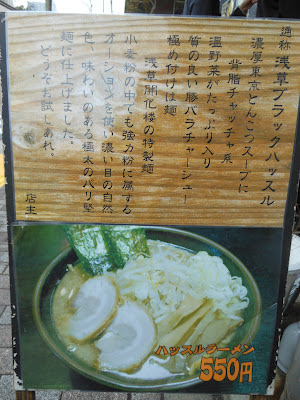 通称 浅草ブラックハッスル
濃厚東京とんこつスープに
背脂チャッチャ系
温野菜たっぷり入り
質の良い豚バラチャーシュー
極め付けは麺
浅草開化楼の特製麺
小麦粉の中でも強力粉に属する
オーションを使い濃い目の自然
色、味わいのある極太のバリ堅
麺に仕上げました。
どうぞお試しあれ。
店主
ハッスルラーメン
550円